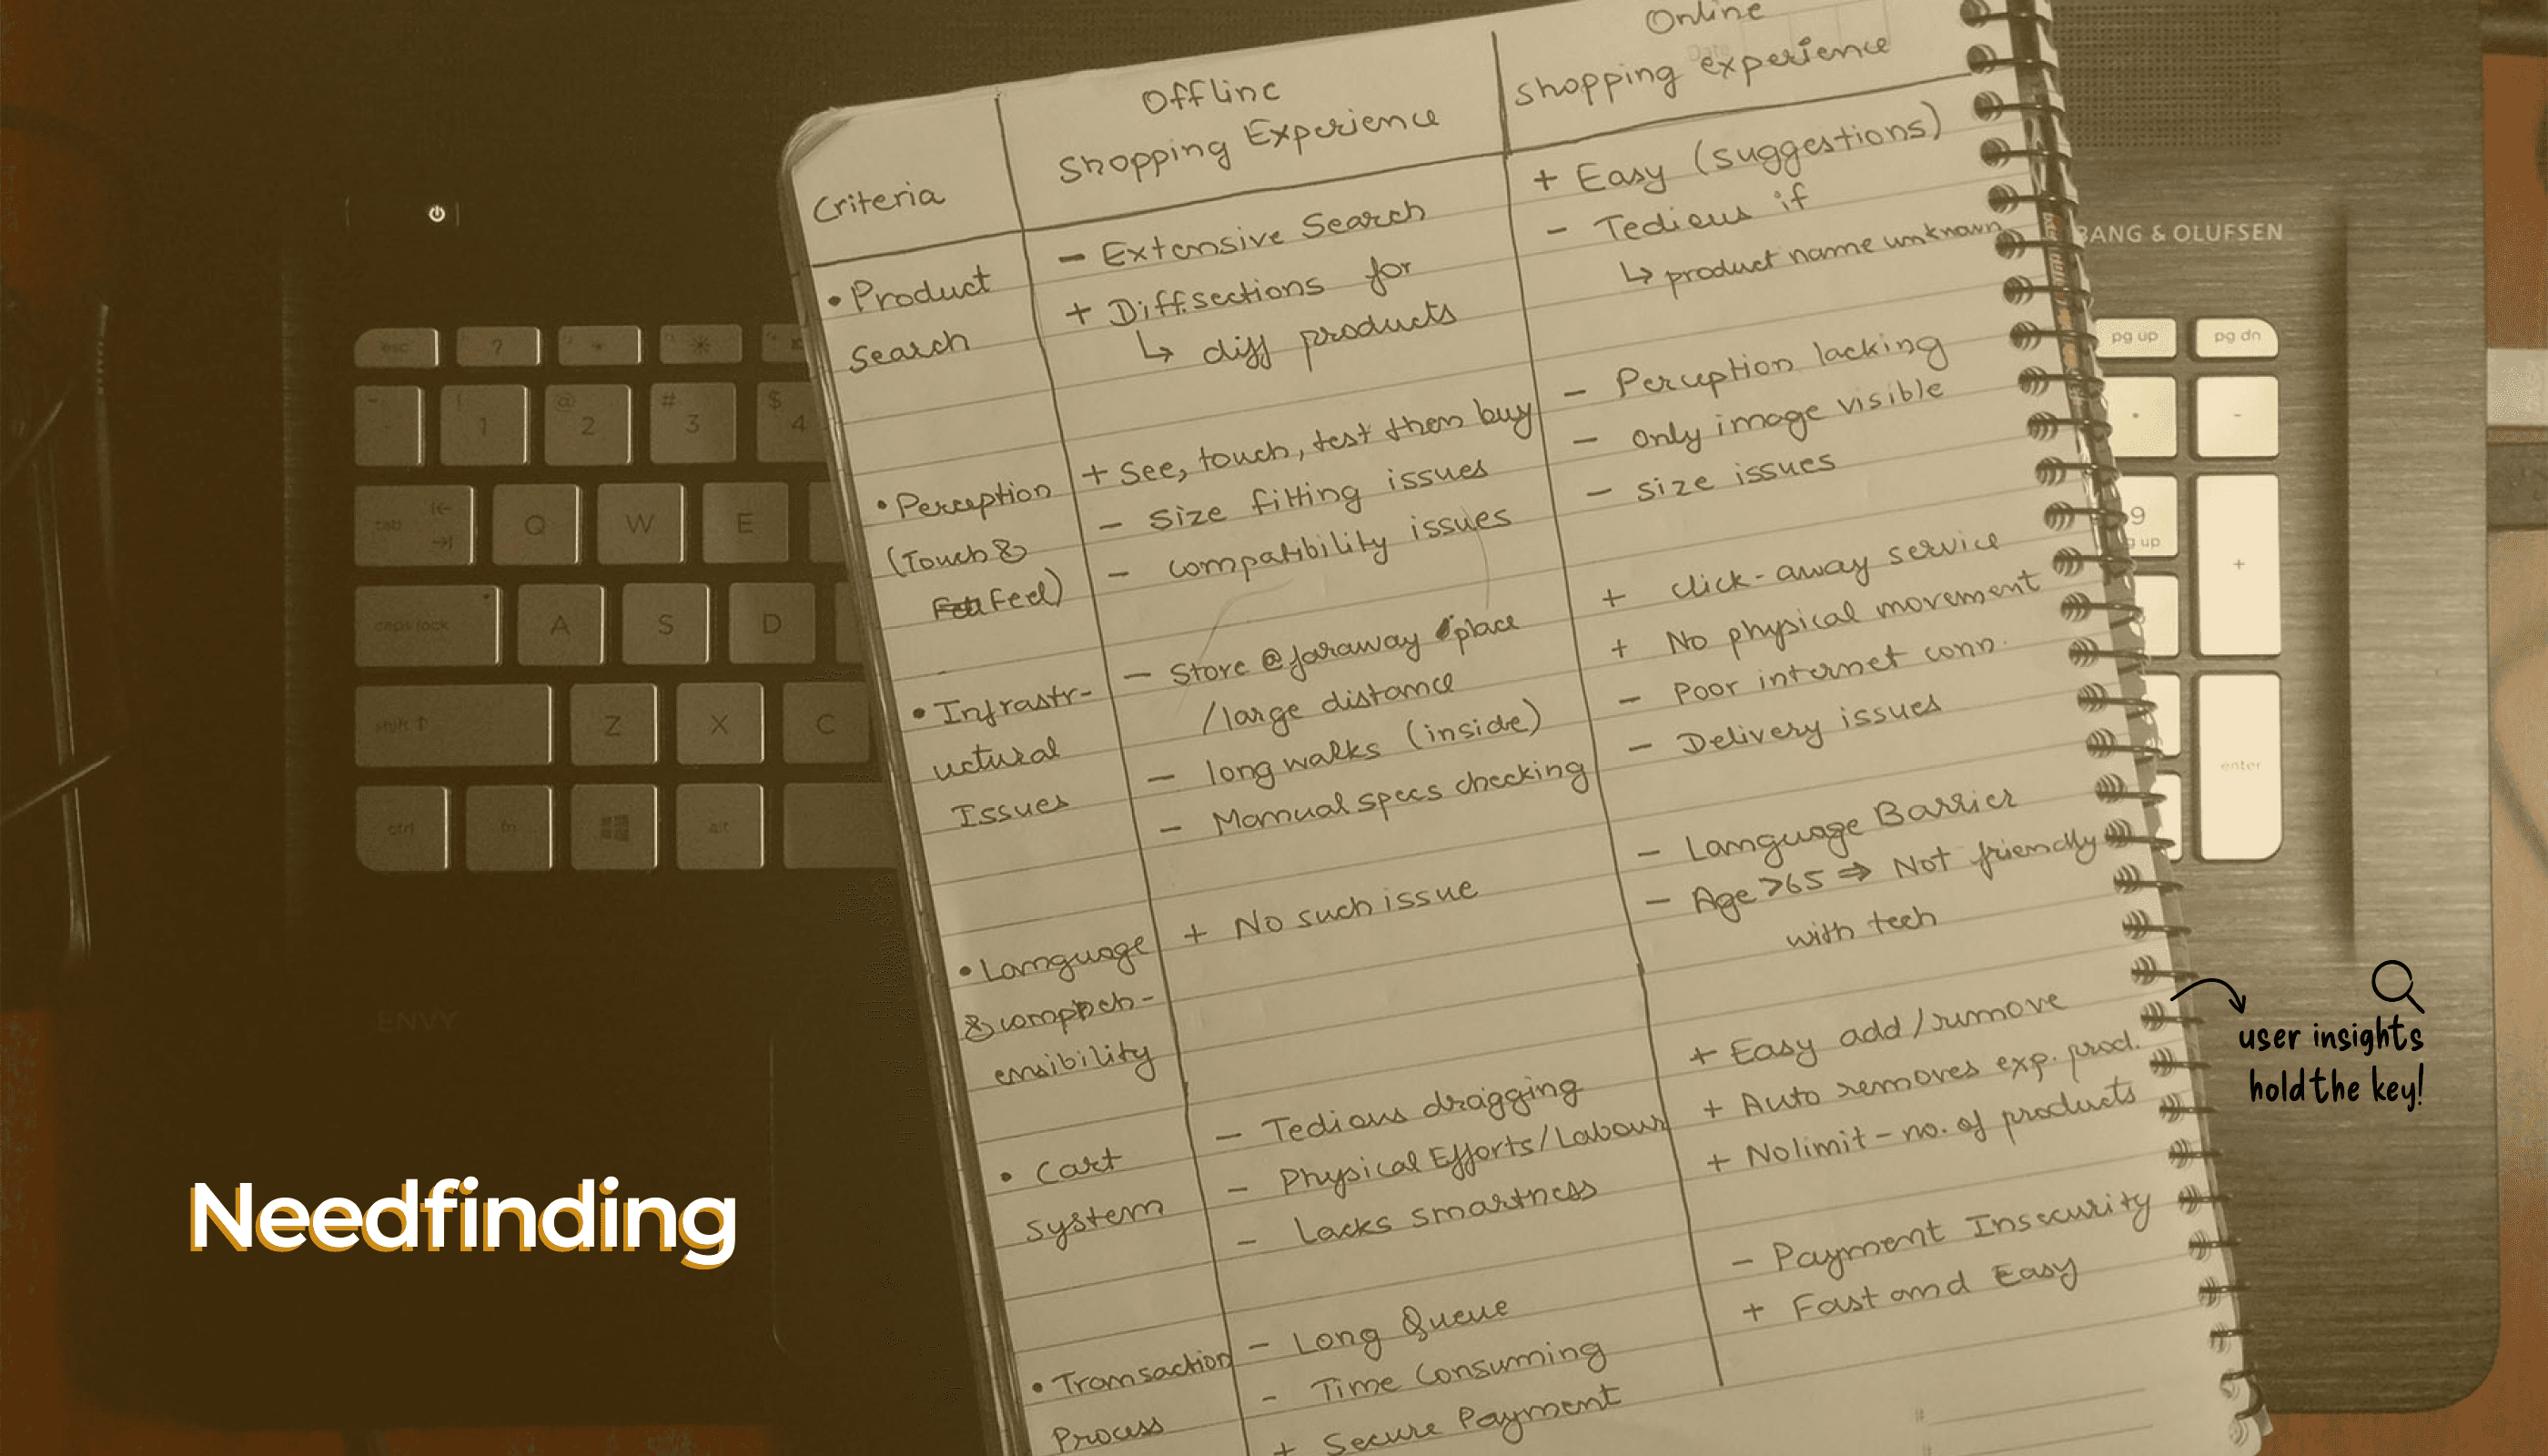 Online
shopping experience
Offline
Shopping Experience
Criteria
• Product
Search
- Extensive Search
+ Diff. sections for
↳ diff products
+ Easy (suggestions)
- Tedious if
↳ product name unknown
• Perception
(Touch &
Feel)
+ See, touch, test then buy
- Size fitting issues
- compatibility issues
- Perception lacking
- only image visible
- size issues
• Infrastr-
uctural
Issues
- Store @ faraway place
/large distance
- long walks (inside)
- Manual specs checking
+ click-away service
+ No physical movement
- Poor internet conn.
- Delivery issues
• Language
& compreh-
ensibility
+ No such issue
- Language Barrier
- Age >65 ⇒ Not friendly
with tech
• Cart
system
- Tedious dragging
- Physical Efforts/Labour
- Lacks smartness
+ Easy add/remove
+ Auto removes exp. prod.
+ No limit - no. of products
• Transaction
Process
- Long Queue
- Time Consuming
+ Secure Payment
- Payment Insecurity
+ Fast and Easy
Needfinding
user insights
hold the key!
BANG & OLUFSEN
ENVY
esc
?
1
@
2
#
3
$
4
tab
Q
W
E
caps lock
A
S
D
shift
Z
X
C
ctrl
fn
alt
pg up
pg dn
-
9
+
enter